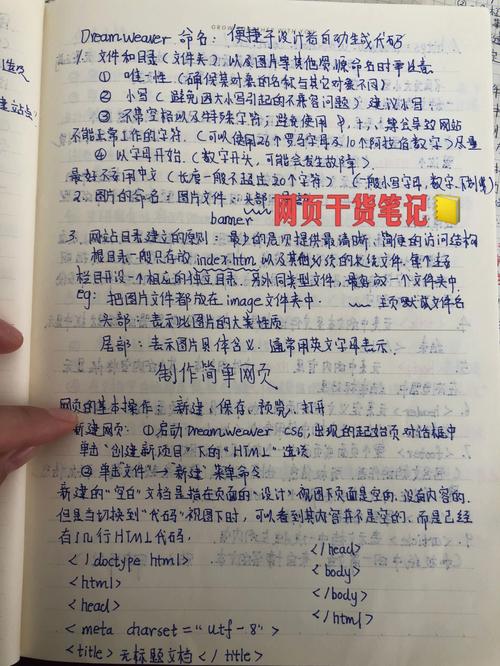 GROW
Dreamweaver 命名: 便捷于设计者自动生成代码
1. 文件和目录(文件夹)以及图片等其他资源命名时要注意
① 唯一性(确保某对象的名称与其它对象不同)
② 小写(避免因大小写引起的不兼容问题)建议小写
③ 不带空格以及特殊字符; 避免使用
不能正常工作的字符.(可以使用26个罗马字母及10个阿拉伯数字)尽量
④ 以字母开始.(数字开头,可能会发生故障).
最好不要用中文(长度一般不超出20个字符)(一般小写字母,数字,下划线)
2. 图片的命名: 图片文件以头部
banner
网页干货笔记
3. 网站目录建立的原则: 最少的层次提供最清晰、简便的访问结构
根目录一般只存放index.htm以及其他必须的系统文件,每个主要
栏目开设一个相应的独立目录,另外同类型文件,最好放一个文件夹中
eg: 把图片文件都放在image文件夹中. 主页默认文件名
头部: 表示此图片的大类性质
尾部: 表示图片具体含义.通常用英文字母表示.
制作简单网页
网页的基本操作: 新建、保存、预览、打开
新建网页: ①启动Dreamweaver CS6,出现的起始页对话框中
单击"创建新项目"下的"HTML"选项
② 单击"文件"→"新建"菜单命令
新建的"空白"文档是指在页面的"设计"视图下页面是空的、没有内容的.
但是当切换到"代码"视图下时,可以看到其内容并不是空的.而是已经
有几行HTML代码.
<!doctype html>
<html>
<head>
<meta charset="utf-8">
<title>无标题文档</title>
</head>
<body>
</body>
</html>